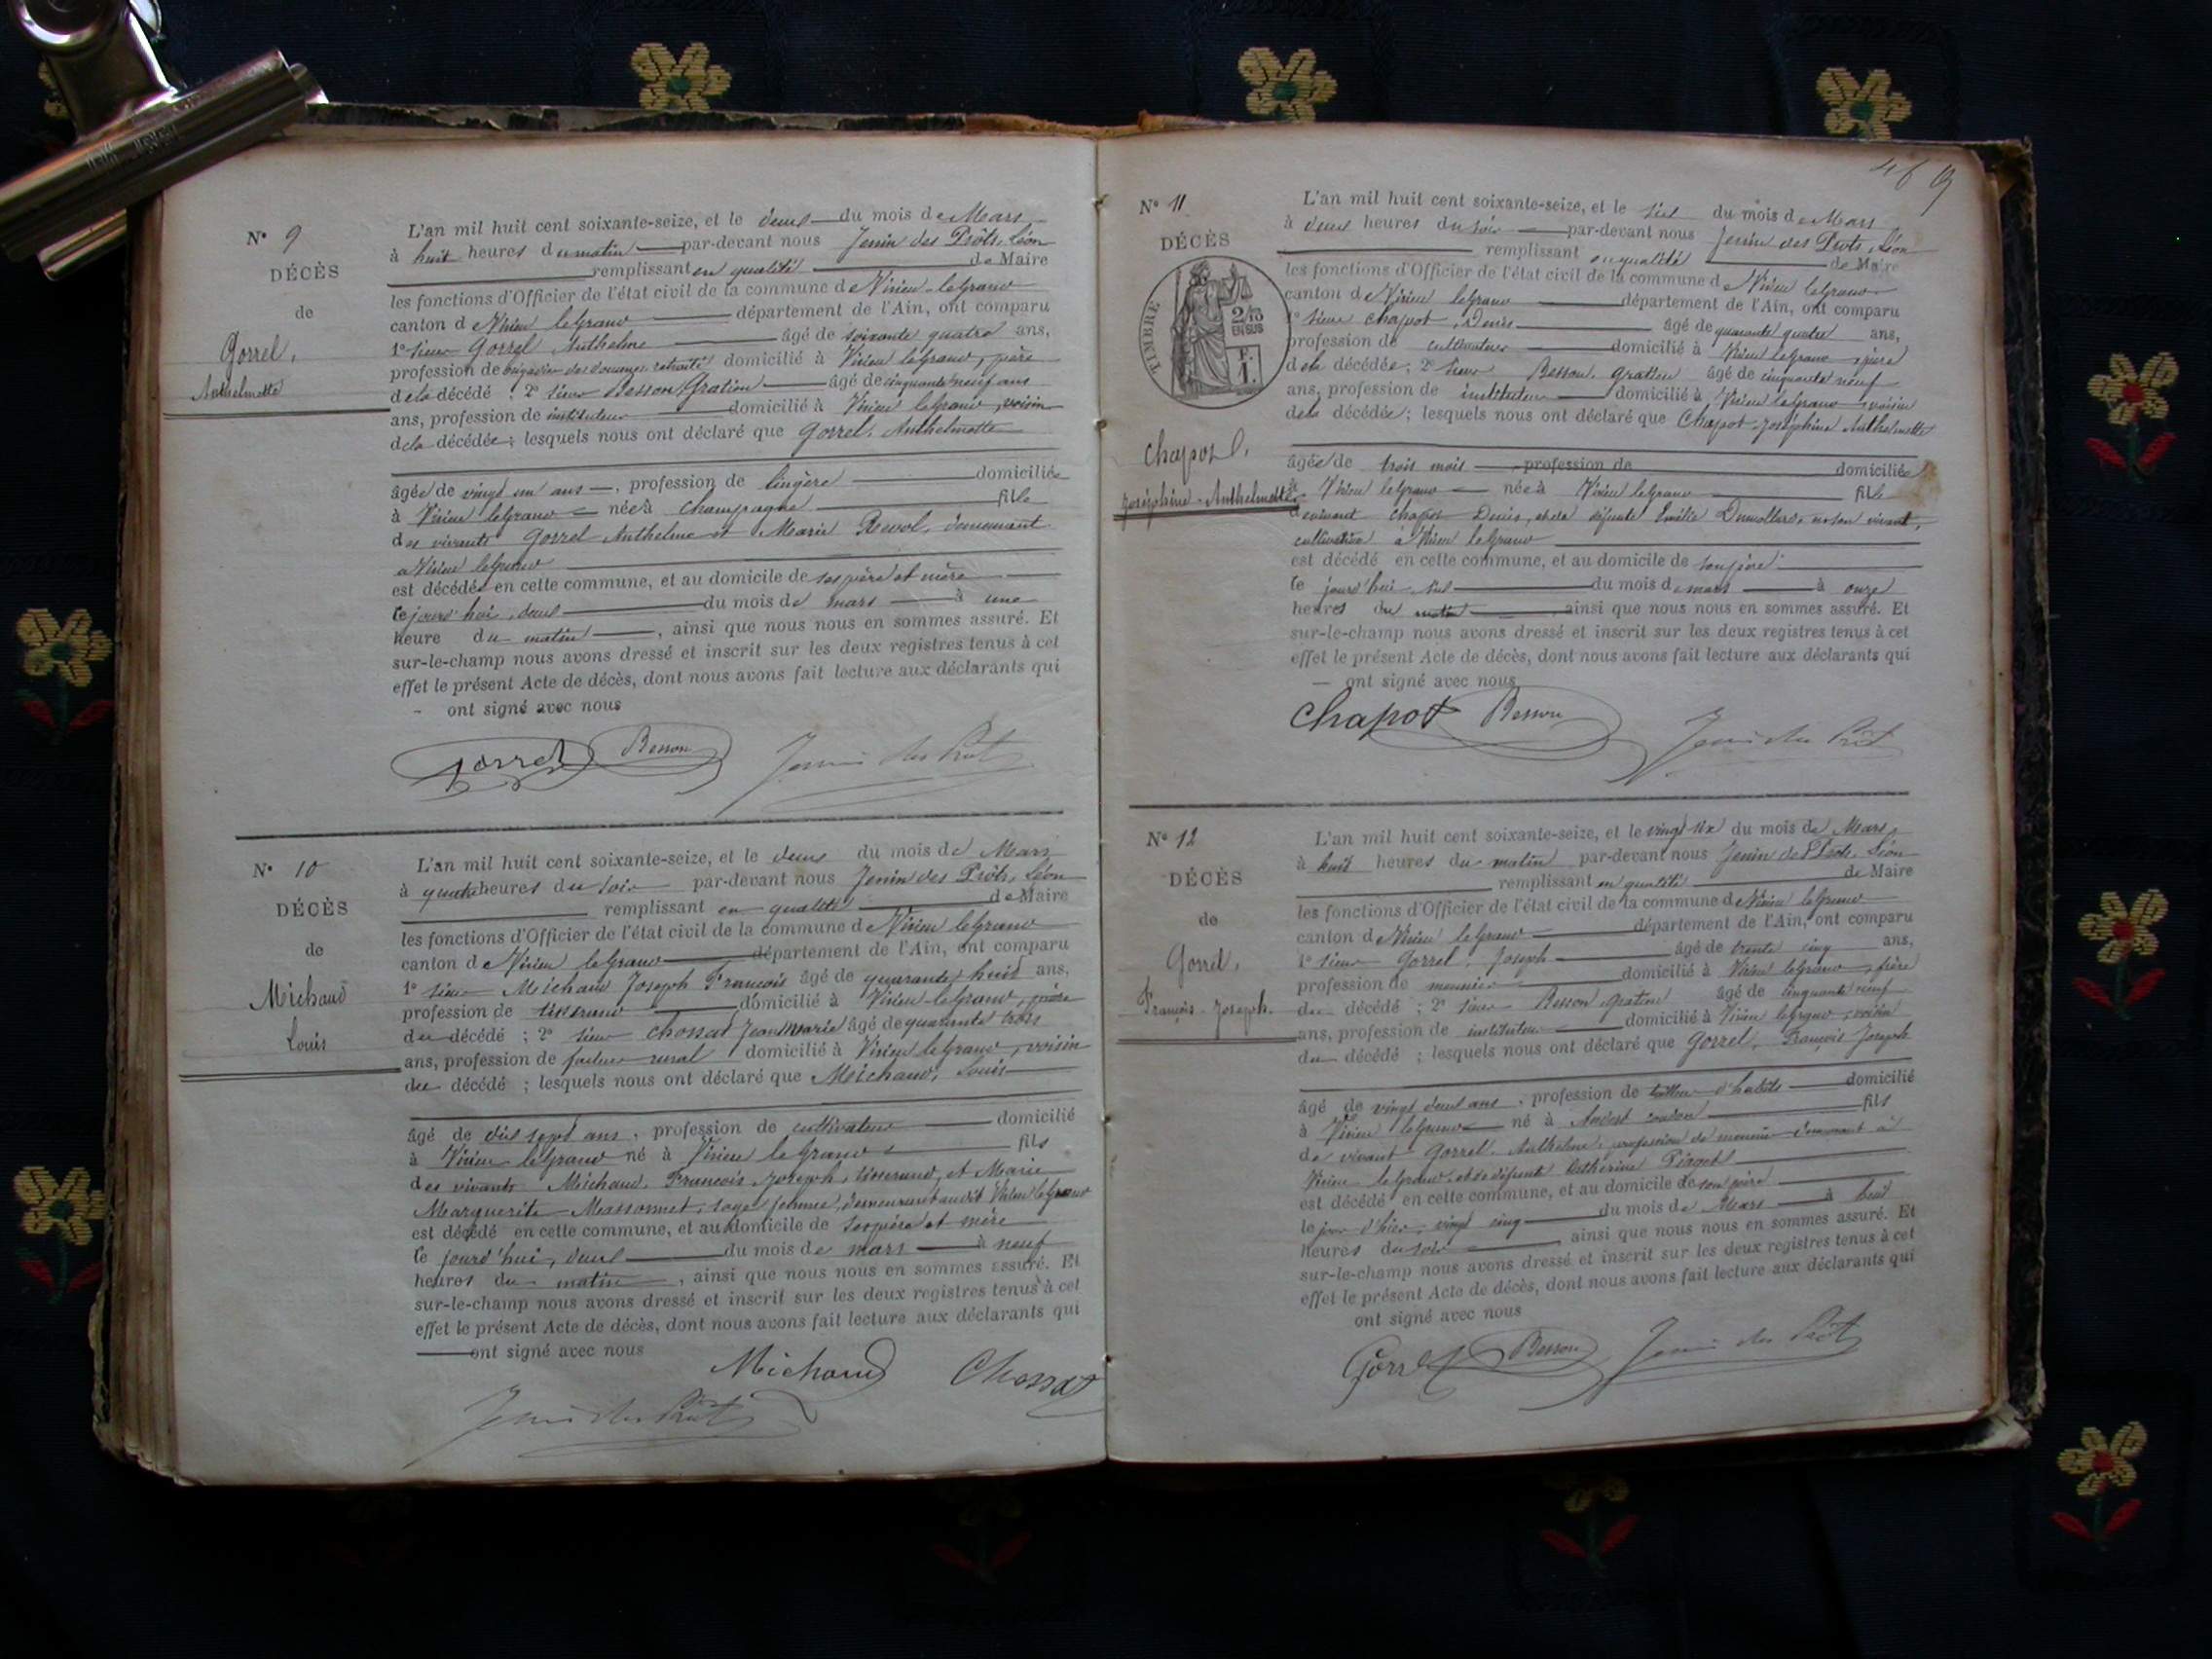 N° 9
DÉCÈS
de
Gorrel,
Anthelmette
L'an mil huit cent soixante-seize, et le deux du mois de Mars
à huit heures du matin par-devant nous Jenin des Prôts, Léon
remplissant en qualité de Maire
les fonctions d'Officier de l'état civil de la commune de Virieu-le grand
canton de Virieu le grand département de l'Ain, ont comparu
1° sieur Gorrel Anthelme âgé de soixante quatre ans,
profession de brigadier des douanes retraité domicilié à Virieu le grand, père
de la décédé ; 2° sieur Besson Gratien âgé de cinquante neuf ans
ans, profession de instituteur domicilié à Virieu le grand, voisin
de la décédée ; lesquels nous ont déclaré que Gorrel, Anthelmette
âgée de vingt un ans, profession de lingère domiciliée
à Virieu le grand née à Champagne fille
des vivants Gorrel Anthelme et Marie demeurant
à Virieu le grand
est décédée en cette commune, et au domicile de ses père et mère
le jourd'hui, deux du mois de mars à une
heure du matin, ainsi que nous nous en sommes assuré. Et
sur-le-champ nous avons dressé et inscrit sur les deux registres tenus à cet
effet le présent Acte de décès, dont nous avons fait lecture aux déclarants qui
- ont signé avec nous
Gorrel Besson Jenin des Prôts
N° 10
DÉCÈS
de
Michaud
Louis
L'an mil huit cent soixante-seize, et le deux du mois de Mars
à quatre heures du soir par-devant nous Jenin des Prôts, Léon
remplissant en qualité de Maire
les fonctions d'Officier de l'état civil de la commune de Virieu le grand
canton de Virieu le grand département de l'Ain, ont comparu
1° sieur Michaud Joseph François âgé de quarante huit ans,
profession de tisserand domicilié à Virieu-le grand, père
du décédé ; 2° sieur Chossat Jean Marie âgé de quarante trois
ans, profession de facteur rural domicilié à Virieu le grand, voisin
du décédé ; lesquels nous ont déclaré que Michaud, Louis
âgé de dix sept ans, profession de cultivateur domicilié
à Virieu le grand né à Virieu le grand fils
des vivants Michaud, François Joseph, tisserand, et Marie
Marguerite Massonnet, sage femme, demeurant audit Virieu le grand
est décédé en cette commune, et au domicile de ses père et mère
le jourd'hui, deux du mois de mars à neuf
heures du matin, ainsi que nous nous en sommes assuré. Et
sur-le-champ nous avons dressé et inscrit sur les deux registres tenus à cet
effet le présent Acte de décès, dont nous avons fait lecture aux déclarants qui
ont signé avec nous
Michaud Chossat
Jenin des Prôts
469
N° 11
DÉCÈS
TIMBRE
2/10
EN SUS
F.
1.
Chapot,
Joséphine-Anthelmette
L'an mil huit cent soixante-seize, et le six du mois de Mars
à deux heures du soir par-devant nous Jenin des Prots, Léon
remplissant en qualité de Maire
les fonctions d'Officier de l'état civil de la commune de Virieu le grand
canton de Virieu le grand département de l'Ain, ont comparu
1° sieur Chapot, Denis âgé de quarante quatre ans,
profession de cultivateur domicilié à Virieu le grand père
de la décédée ; 2° sieur Besson, Gratien âgé de cinquante neuf
ans, profession de instituteur domicilié à Virieu le grand voisin
de la décédée ; lesquels nous ont déclaré que Chapot Joséphine Anthelmette
âgée de trois mois, profession de domiciliée
à Virieu le grand née à Virieu le grand fille
de vivant Chapot Denis, et de défunte Emélie Dumollard, en son vivant,
à Virieu le grand
est décédé en cette commune, et au domicile de son père
le jourd'hui six du mois de mars à onze
heures du matin, ainsi que nous nous en sommes assuré. Et
sur-le-champ nous avons dressé et inscrit sur les deux registres tenus à cet
effet le présent Acte de décès, dont nous avons fait lecture aux déclarants qui
— ont signé avec nous
Chapot Besson Jenin des Prôts
N° 12
DÉCÈS
de
Gorrel,
François-Joseph.
L'an mil huit cent soixante-seize, et le vingt six du mois de Mars
à huit heures du matin par-devant nous Jenin des Prots, Léon
remplissant en qualité de Maire
les fonctions d'Officier de l'état civil de la commune de Virieu le grand
canton de Virieu le grand département de l'Ain, ont comparu
1° sieur Gorrel, Joseph âgé de trente cinq ans,
profession de meunier domicilié à Virieu le grand, frère
du décédé ; 2° sieur Besson, Gratien âgé de cinquante neuf
ans, profession de instituteur domicilié à Virieu le grand, voisin
du décédé ; lesquels nous ont déclaré que Gorrel, François Joseph
âgé de vingt deux ans, profession de tailleur d'habits domicilié
à Virieu le grand né à Andert condon fils
de vivant Gorrel, Anthelme, profession de meunier demeurant à
Virieu le grand, et de défunte Catherine Piaget
est décédé en cette commune, et au domicile de son père
le jour d'hier, vingt cinq du mois de Mars à huit
heures du soir, ainsi que nous nous en sommes assuré. Et
sur-le-champ nous avons dressé et inscrit sur les deux registres tenus à cet
effet le présent Acte de décès, dont nous avons fait lecture aux déclarants qui
ont signé avec nous
Gorrel Besson Jenin des Prôts